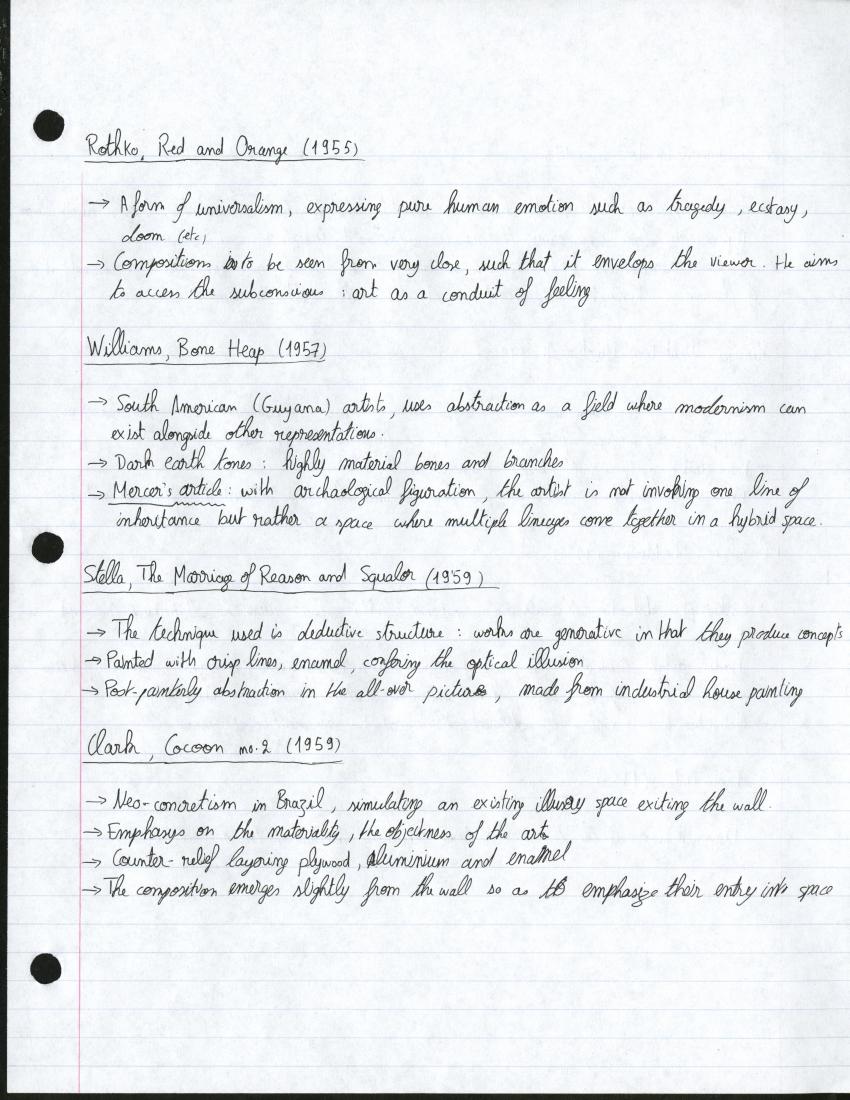 Rothko, Red and Orange (1955)
→ A form of universalism, expressing pure human emotion such as tragedy, ecstasy,
doom (etc)
→ Compositions is to be seen from very close, such that it envelops the viewer. He aims
to access the subconscious : art as a conduit of feeling
Williams, Bone Heap (1957)
→ South American (Guyana) artists, uses abstraction as a field where modernism can
exist alongside other representations.
→ Dark earth tones : highly material bones and branches
→ Mercer's article : with archaological figuration, the artist is not invoking one line of
inheritance but rather a space where multiple lineages come together in a hybrid space.
Stella, The Marriage of Reason and Squalor (1959)
→ The technique used is deductive structure : works are generative in that they produce concepts
→ Painted with crisp lines, enamel, confering the optical illusion
→ Post-painterly abstraction in the all-over pictures, made from industrial house painting
Clark, Cocoon no.2 (1959)
→ Neo-concretism in Brazil, simulating an existing illusory space exiting the wall.
→ Emphasys on the materiality, the objectness of the art
→ Counter-relief layering plywood, aluminium and enamel
→ The composition emerges slightly from the wall so as to emphasize their entry into space